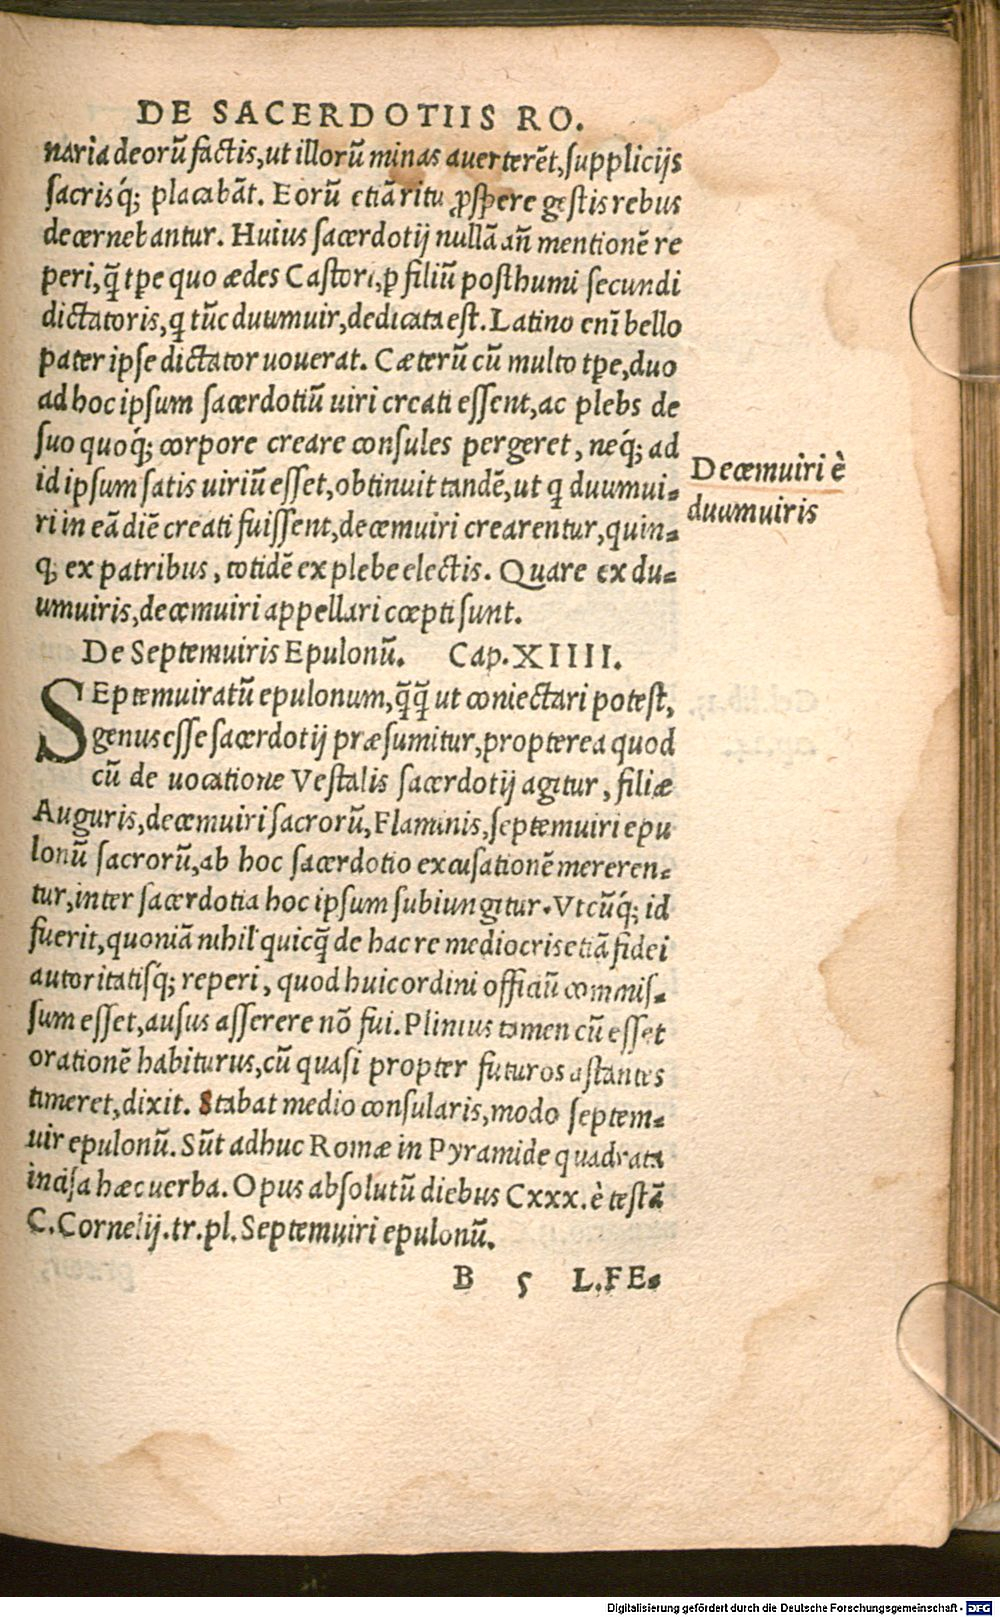 DE SACERDOTIIS RO.
naria deorũ factis, ut illorũ minas auerterẽt, supplicijs
sacrisq́; placabãt. Eorũ etiã ritu ꝓspere gestis rebus
decernebantur. Huius sacerdotij nullã añ mentionẽ re
peri, q̃ tp̃e quo ædes Castori, ꝑ filiũ posthumi secundi
dictatoris, q tũc duumuir, dedicata est. Latino enĩ bello
pater ipse dictator uouerat. Cæterũ cũ multo tp̃e, duo
ad hoc ipsum sacerdotiũ uiri creati essent, ac plebs de
suo quoq́; corpore creare consules pergeret, neq́; ad
id ipsum satis uiriũ esset, obtinuit tandẽ, ut q duumui-
ri in eã diẽ creati fuissent, decemuiri crearentur, quin-
q; ex patribus, totidẽ ex plebe electis. Quare ex du-
umuiris, decemuiri appellari cœpti sunt.
Decemuiri è
duumuiris
De Septemuiris Epulonũ. Cap. XIIII.
SEptemuiratũ epulonum, q̃q̃ ut coniectari potest,
genus esse sacerdotij præsumitur, propterea quod
cũ de uocatione Vestalis sacerdotij agitur, filiæ
Auguris, decemuiri sacrorũ, Flaminis, septemuiri epu
lonũ sacrorũ, ab hoc sacerdotio excusationẽ mereren-
tur, inter sacerdotia hoc ipsum subiungitur. Vtcũq́; id
fuerit, quoniã nihil quicq̃ de hac re mediocris etiã fidei
autoritatisq́; reperi, quod huic ordini officiũ commis-
sum esset, ausus asserere nõ fui. Plinius tamen cũ esset
orationẽ habiturus, cũ quasi propter futuros astantes
timeret, dixit. Stabat medio consularis, modo septem-
uir epulonũ. Sũt adhuc Romæ in Pyramide quadrata
incisa hæc uerba. Opus absolutũ diebus Cxxx. è testã
C. Cornelij. tr. pl. Septemuiri epulonũ.
B 5 L. FE-
Digitalisierung gefördert durch die Deutsche Forschungsgemeinschaft - DFG